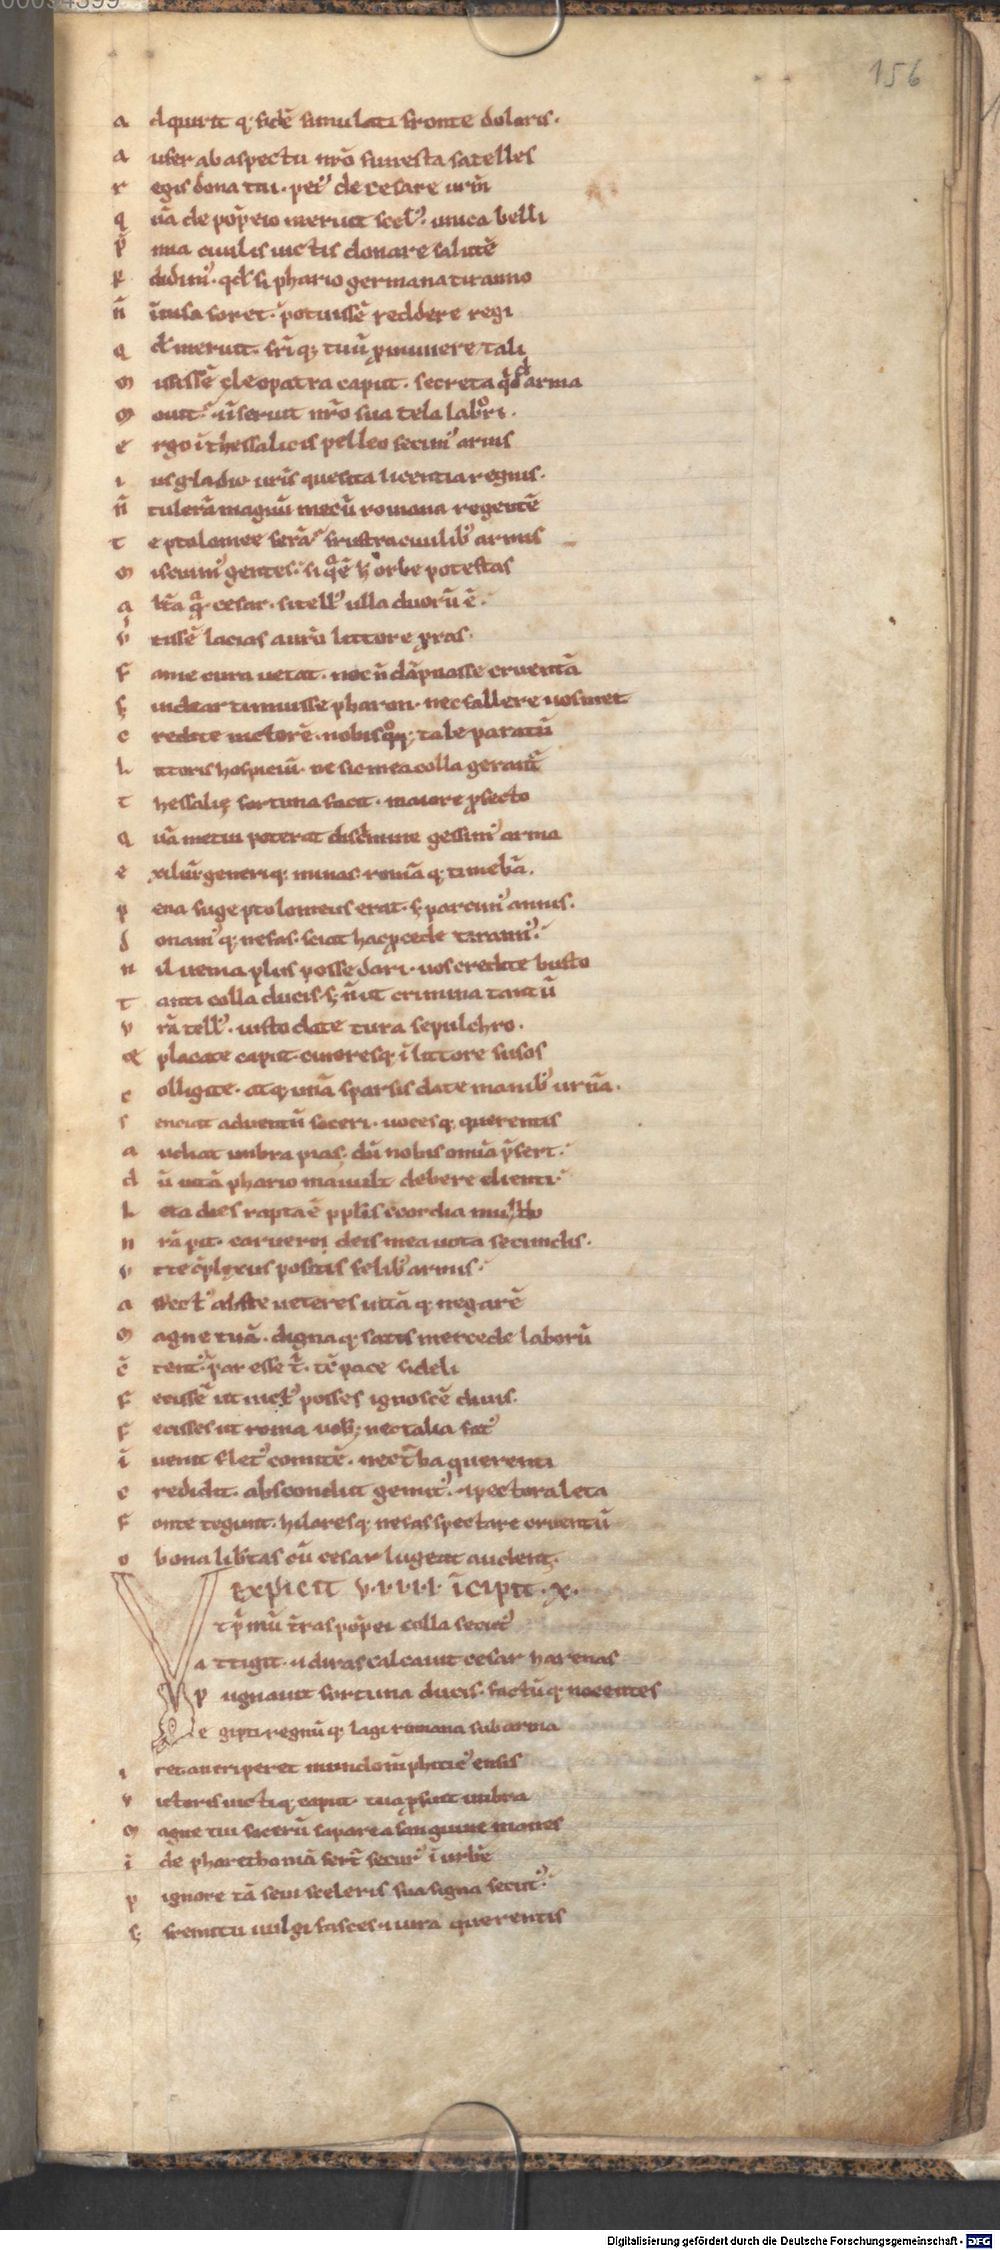 156
a dquirit q; fidē simulati fronte doloris.
a ufer ab aspectu nr̄o funesta satelles
r egis dona tui. pei' de cesare ur̄m
q uā de pōpeio meruit scel'. unica belli
p̄ mia ciuilis uictis donare salutē
p didim'. qđ si phario germana tiranno
ñ īuisa foret. potuissē reddere regi
q đ meruit. fr̄i q; tuū p munere tali
m isissē cleopatra caput. secreta qđ arma
m ouit. īseruit nr̄o sua tela labori.
e rgo ī thessalicis pelleo fecim' aruis
i us gladio. ur̄is quesita licentia regnis.
ñ tulerā magnū mecū romana regentē
t e ptolomee ferā. frustra ciuilib' armis
m iscuim' gentes. si q̄ ē h' orbe potestas
a lt̄a q̄ cesar. si tell' ulla duorū ē.
v tissē lacias aur̄o littore proras.
f ame cura uetat. nec ñ dāpnasse cruentā
s; uidear timuisse pharon. nec fallere uosmet
c redite uictorē. nobis qq; tale paratū
l ittoris hospiciū. ne sic mea colla gerant'
t hessalię fortuna facit. maiore profecto
q uā metui poterat discīmine gessim' arma
e xiliū generiq; minas romā q; timebā.
p ena fuge ptolomeus erat. s; parcim' annis.
d onam' q; nefas. sciat hac pcede tiranni'.
n il uenia plus posse dari. uos credite busto
t anti colla ducis. s; ñ ut crimina tantū
v rā tell'. iusto date tura sepulchro.
& placate caput. cineresq; ī littore fusos
c olligite. atq; unā sparsis date manib' urnā.
s enciat aduentū soceri. uocesq; querentis
a udiat umbra pias. dū nobis omīa p̄fert.
d ū uitā phario mauult debere clienti.
l eta dies rapta ē pplis cōcordia mundo
n rā pit. caruere deis mea uota secundis.
v t te cp̄lexus positis felib' armis.
a ffect' abs te ueteres uitā q; negarē
m agne tuā. digna q; satis mercede laborū
c̄ tent' par esse t'. tē pace fideli
f ecissē ut uict' posses ignoscē diuis.
f ecisses ut roma nob; nec talia fat'
ī uenit flet' comitē. nec t̄ba querenti
c redidit. abscondunt gemit'. ī pectora leta
f onte tegunt. hilaresq; nefas spectare cruentū
o bona lib̄tas cū cesar lugeat audent.
Explicit V.I.I.I.I. īcipit. X.
V t p̄mū t̄ras pōpei colla secut'
a ttigit. ī diras calcauit cesar harenas
p ugnauit fortuna ducis. fatū q; nocentes
e gipti regnū q; lagi romana sub arma
i ret an eriperet mundo mēphitic' ensis
v ictoris uicti q; caput. tua pfuit umbra
m agne tui socerū rapuere a sanguine manes
i de pharethoniā fert' secur' ī urbē
p ignore tā seui sceleris sua signa secut'.
s; fremitu uulgi fasces ī iura querentis
Digitalisierung gefördert durch die Deutsche Forschungsgemeinschaft - DFG